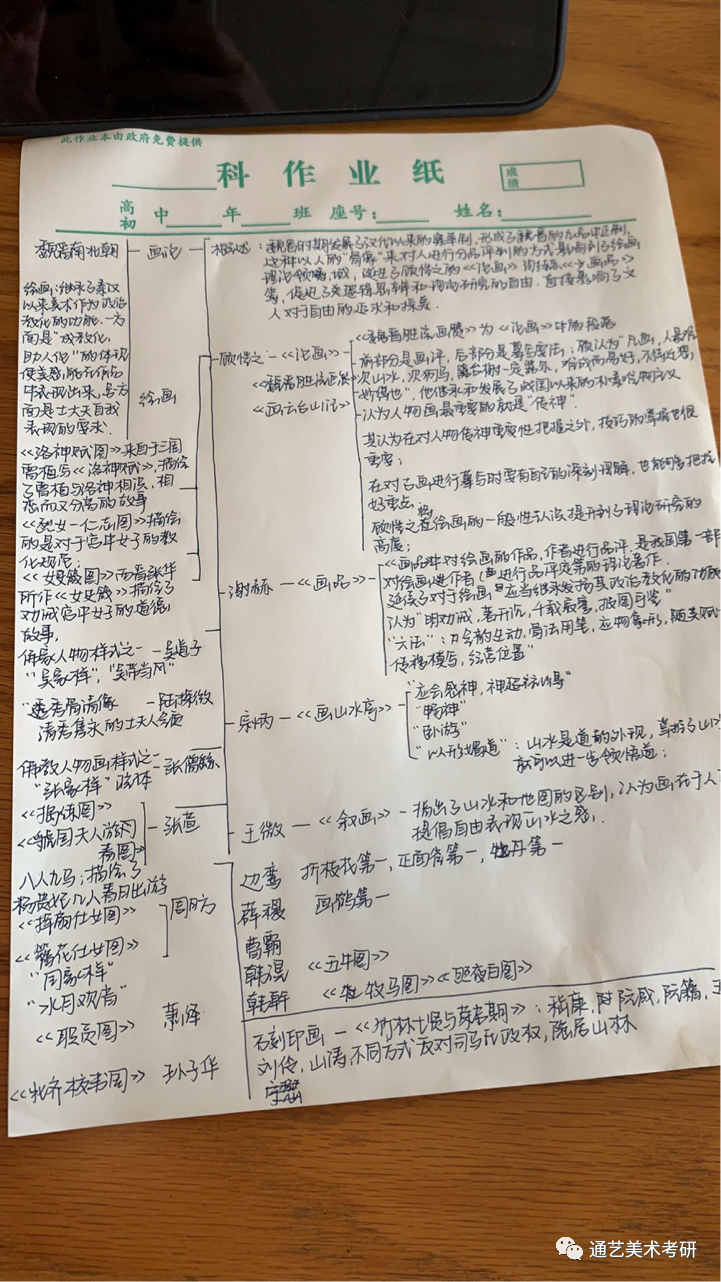 此作业本由政府免费提供
科 作 业 纸
成绩
高初 中 年 班 座号: 姓名:
魏晋南北朝
画论
概述:魏晋时期发展了汉代以来的察举制,形成了魏晋的九品中正制,
这种以人的"骨像"来对人进行分品评判的方式影响到了绘画
理论领域,促进了顾恺之的《论画》谢赫《画品》
等,促进了
人对于自由的追求和探索
绘画:继承了秦汉
以来美术作为政治
教化的功能.一方
面是"成教化,
助人伦"的体现
使美感能在作品
中表现出来,另方
面是士大夫自我
表现的要求.
绘画
顾恺之
《论画》
《魏晋胜流画赞》
《画云台山记》
《魏晋胜流画赞》为《论画》中的段落
前部分是画评,后部分是摹写要法;顾认为"凡画,人最难
次山水,次狗马,台榭一定器耳,难成而易好,不待迁想
妙得也",他继承和发展了战国以来的朴素唯物主义
认为人物画最重要的就是"传神".
其认为在对人物传神重要性把握之外,技巧的掌握也很
重要;
在对古画进行摹写时要有自己的深刻理解,也能够把握
好重点.
顾恺之将绘画的一般性认识提升到了理论研究的
高度;
《洛神赋图》来自于三国
曹植写《洛神赋》,描绘
了曹植与洛神相识,相
恋而又分离的故事
《列女一仁志图》描绘
的是对于宫中女子的教
化规范;
《女史箴图》西晋张华
所作《女史箴》描绘了
劝诫宫中女子的道德
故事,
谢赫
《画品》
《画品》中对绘画的作品,作者进行品评,是我国第一部
对绘画进作者进行品评定第的理论著作.
延续了对于绘画应当继承发扬其政治教化的功能
认为"明劝戒,著升沉,千载寂寥,披图可鉴"
"六法":气韵生动,骨法用笔,应物象形,随类赋
传移模写,经营位置"
佛象人物样式之一 - 吴道子
"吴家样","吴带当风"
"秀骨清像 - 陆探微
清秀隽永的士大夫人像
宗炳
《画山水序》
"应会感神,神超理得"
"畅神"
"卧游"
"以形媚道":山水是道的外现,
就可以进一步领悟道;
佛教人物画样式之一 - 张僧繇
"张家样"
王微
《叙画》
指出了山水和地图的区别,认为画在于人
提倡自由表现山水之感,.
《捣练图》
《虢国夫人游
春图》
张萱
八人九马;描绘了
杨贵妃几人春日出游
《挥扇仕女图》
《簪花仕女图》
周昉
"周家样"
"水月观音"
《职贡图》 萧绎
《北齐校书图》 孙子华
边鸾 折枝花第一,正面雀第一,牡丹第一
薛稷 画鹤第一
曹霸
韩滉 《五牛图》
韩幹 《牧马图》《照夜白图》
石刻印画 - 《竹林七贤与荣启期》:嵇康,阮咸,阮籍,王
刘伶,山涛,不同方式反对司马氏政权,隐居山林
通艺美术考研